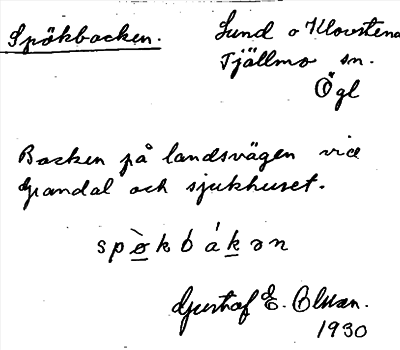 Spökbacken.
Lund o Klovstena
Tjällmo sn.
Ögl
Backen på landsvägen vid
Grandal och sjukhuset.
spø̀kbákən
Gustaf E. Olsson.
1930